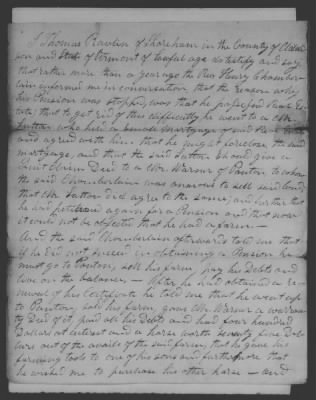 I Thomas Rowlin of Shoreham in the County of Addi-
son and State of Vermont of lawful age do testify and say
that rather more than a year ago the Rev Henry Chamber-
lain informed me in conversation, that the reason why
his Pension was stopped, was that he possessed Real Es-
tate; that to get rid of this difficulty he went to a Mr
Sutton who held a small mortgage of said Real Estate
and agreed with him that he might foreclose the said
mortgage, and that the said Sutton should give a
Quit Claim Deed to a Mr Warner of Panton to whom
the said Chamberlain was anxious to sell said land;
that Mr Sutton did agree to the same; and further that
he had petitioned again for a Pension and that now
it could not be objected that he had a farm—
And the said Chamberlain afterwards told me that
if he did not succeed in obtaining a Pension he
must go to Panton, sell his farm, pay his Debts and
live on the balance,— After he had obtained a re-
newal of his Certificate he told me that he went up
to Panton, sold his farm, gave Mr Warner a warran-
tee Deed of it, paid all his Debts and had four hundred
Dollars at interest and a horse worth seventy five Dol-
lars out of the avails of the said farm; that he gave his
farming tools to one of his sons and furthermore that
he wished me to purchase his other horse — and